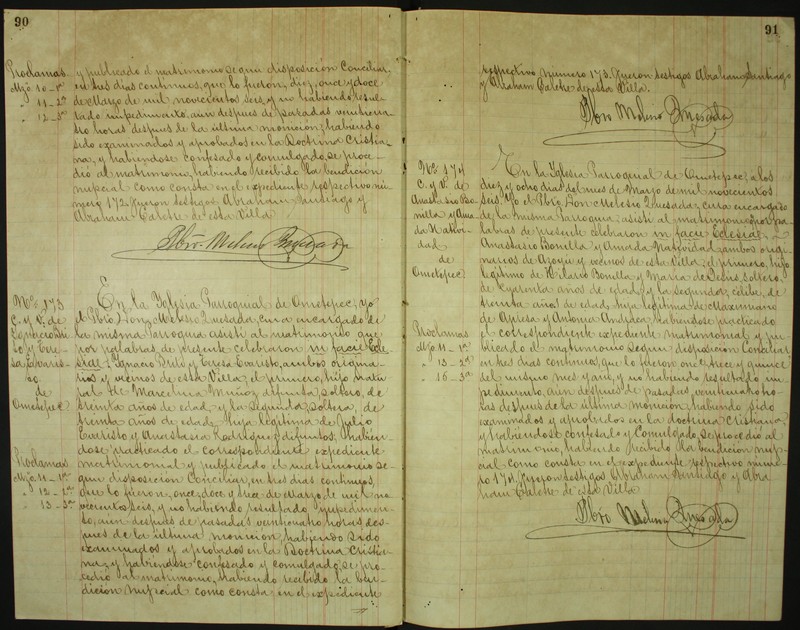 90
Proclamas
Mzo. 10 - 1ª
" 11 - 2ª
" 12 - 3ª
y publicado el matrimonio segun disposicion Conciliar,
en tres dias continuos, que lo fueron, diez, once y doce
de Marzo de mil novecientos seis, y no habiendo resul-
tado impedimento, aun despues de pasadas veinticua-
tro horas despues de la última monicion, habiendo
sido examinados y aprobados en la Doctrina Cristia-
na, y habiendose confesado y comulgado, se proce-
dió al matrimonio, habiendo recibido la bendicion
nupcial como consta en el expediente respectivo nú-
mero 172. Fueron testigos Abraham Santiago y
Abraham Calche de esta Villa.
Pbro. Melesio Quesada
Nº 173
C. y V. de
Ignacio
y Tere-
sa Evaris-
to
de
Ometepec
Proclamas
Mzo. 11 - 1ª
" 12 - 2ª
" 13 - 3ª
En la Yglesia Parroquial de Ometepec, Yo
el Pbro. Don Melesio Quesada, cura encargado de
la misma Parroquia asistí al matrimonio que
por palabras de presente celebraron in facie Ecle-
siae, Ignacio y Teresa Evaristo, ambos origina-
rios y vecinos de esta Villa; el primero, hijo natu-
ral de Marcelina Muñoz difunta, soltero, de
treinta años de edad, y la segunda, soltera, de
treinta años de edad, hija legítima de Julio
Evaristo y Anastasia Rodriguez difuntos. Habien-
dose practicado el correspondiente expediente
matrimonial y publicado el matrimonio se-
gun disposicion Conciliar, en tres dias continuos,
que lo fueron, once, doce y trece de Marzo, de mil no-
vecientos seis, y no habiendo resultado impedimen-
to, aun despues de pasadas veinticuatro horas des-
pues de la última monicion, habiendo sido
examinados y aprobados en la Doctrina Cristia-
na, y habiendose confesado y comulgado, se pro-
cedió al matrimonio, habiendo recibido la ben-
dicion nupcial como consta en el expediente
91
respectivo número 173. Fueron testigos Abraham Santiago
y Abraham Calche de esta Villa.
Pbro. Melesio Quesada
Nº 174
C. y V. de
Anastasio Bo-
nilla y Ama-
da Nativi-
dad
de
Ometepec
Proclamas
Mzo. 11 - 1ª
" 13 - 2ª
" 15 - 3ª
En la Yglesia Parroquial de Ometepec, a los
diez y ocho dias del mes de Marzo de mil novecientos
seis, Yo el Pbro. Don Melesio Quesada, cura encargado
de la misma Parroquia asistí al matrimonio que por pa-
labras de presente celebraron in facie Eclesiae,
Anastasio Bonilla y Amada Natividad, ambos origi-
narios de Azoyú y vecinos de esta Villa; el primero, hijo
legítimo de Hilario Bonilla y Maria de Jesus, soltero,
de cuarenta años de edad, y la segunda, célibe, de
treinta años de edad, hija legítima de Maximiano
de y Antonia Andrea. Habiendose practicado
el correspondiente expediente matrimonial y pu-
blicado el matrimonio segun disposicion Conciliar,
en tres dias continuos, que lo fueron once, trece y quince
del mismo mes y año, y no habiendo resultado im-
pedimento, aun despues de pasadas veinticuatro ho-
ras despues de la última monicion, habiendo sido
examinados y aprobados en la doctrina Cristiana,
y habiendose confesado y Comulgado, se procedió al
matrimonio, habiendo recibido la bendicion nup-
cial como consta en el expediente respectivo núme-
ro 174. Fueron testigos Abraham Santiago y Abra-
ham Calche de esta Villa.
Pbro. Melesio Quesada